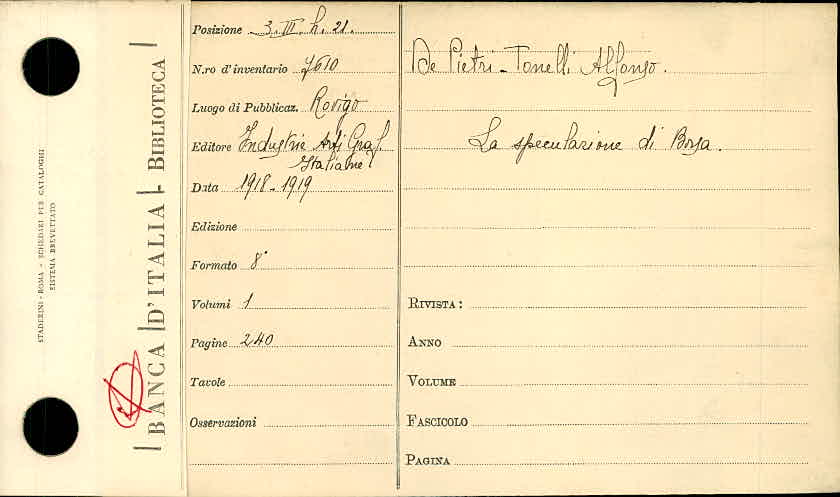 STADERINI - ROMA - SCHEDARI PER CATALOGHI
SISTEMA BREVETTATO
BANCA D'ITALIA - BIBLIOTECA
Posizione 3. III. h. 21.
N.ro d'inventario 7610
Luogo di Pubblicaz. Rovigo
Editore Industrie Arti Graf.
Italiane
Data 1918-1919
Edizione
Formato 8°
Volumi 1
Pagine 240
Tavole
Osservazioni
De Pietri-Tonelli Alfonso.
La speculazione di Borsa.
RIVISTA:
ANNO
VOLUME
FASCICOLO
PAGINA